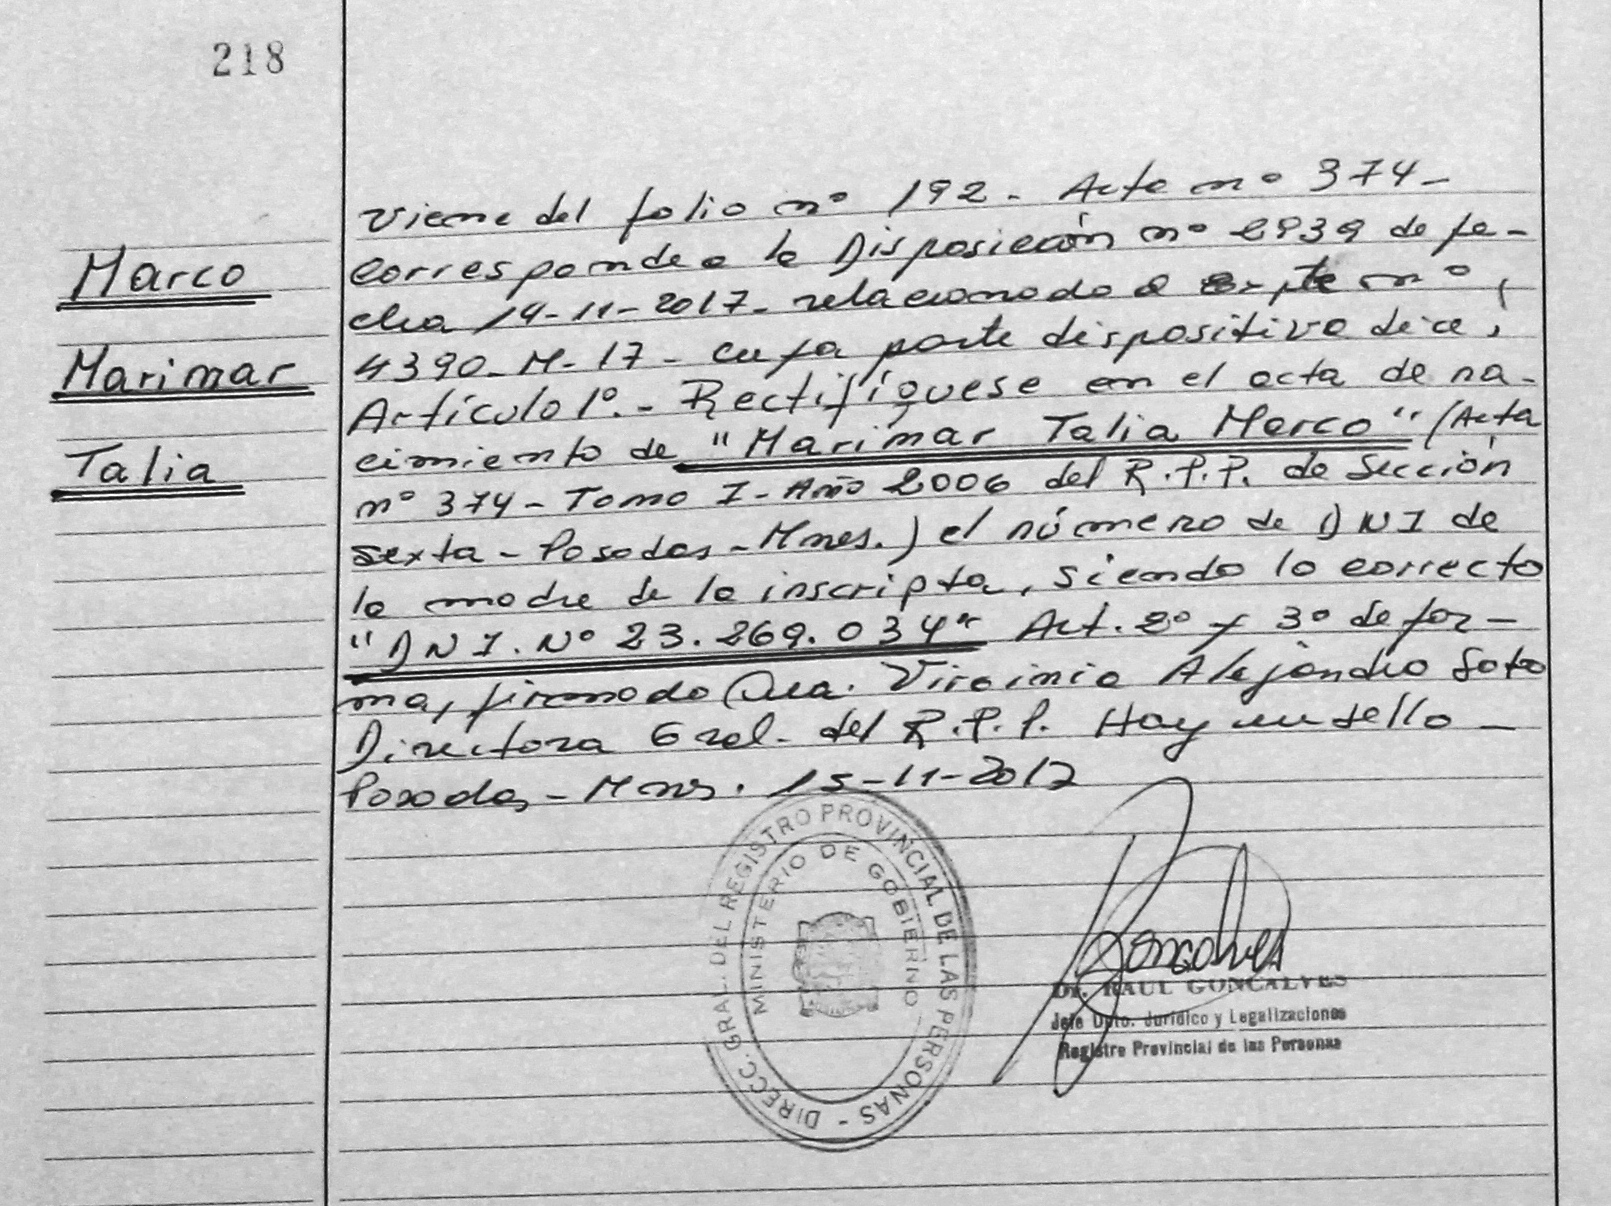 218
Marco
Marimar
Talia
Viene del folio nº 192 - Acta nº 374 -
corresponde a la Disposición nº 2939 de fe-
cha 14-11-2017 - relacionado a Expte nº
4390-M-17 - cuya parte dispositiva dice:
Artículo 1º.- Rectifíquese en el acta de na-
cimiento de "Marimar Talia Marco" (Acta
nº 374 - Tomo I - Año 2006 del R.P.P. de Sección
Sexta - Posadas - Mnes.) el número de DNI de
la madre de la inscripta, siendo lo correcto
"DNI. Nº 23.269.034" Art. 2º y 3º de for-
ma, firmado Dra. Virginia Alejandra Soto
Directora Gral. del R.P.P. Hay un sello -
Posadas - Mnes. 15-11-2017
DIRECC. GRAL. DEL REGISTRO PROVINCIAL DE LAS PERSONAS -
MINISTERIO DE GOBIERNO
Goncalves
Dr. RAUL GONCALVES
Jefe Dpto. Jurídico y Legalizaciones
Registro Provincial de las Personas